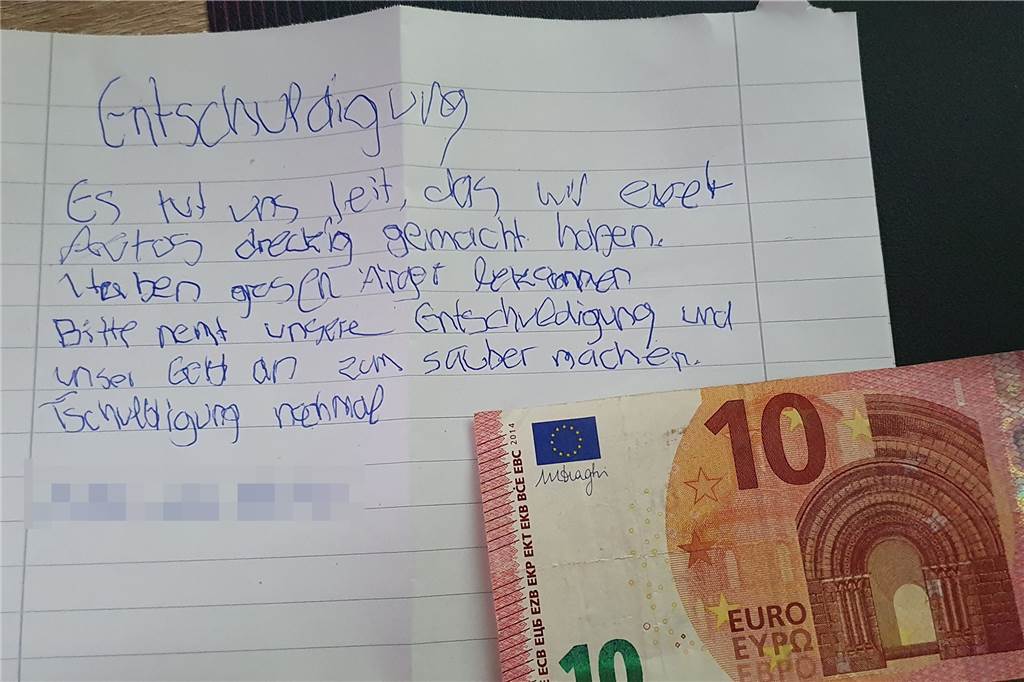 Entschuldigung
Es tut uns leit, das wir
Autos dreckig gemacht haben.
Haben grosen Ärger bekommen
Bitte nemt unsere Entschuldigung und
unser Geld an zum sauber machen.
Tschuldigung nochmal
BCE ECB ЕЦБ EZB EKP EKT EKB BĊE EBC 2014
10
EURO
ΕΥΡΩ
ЕВРО
10